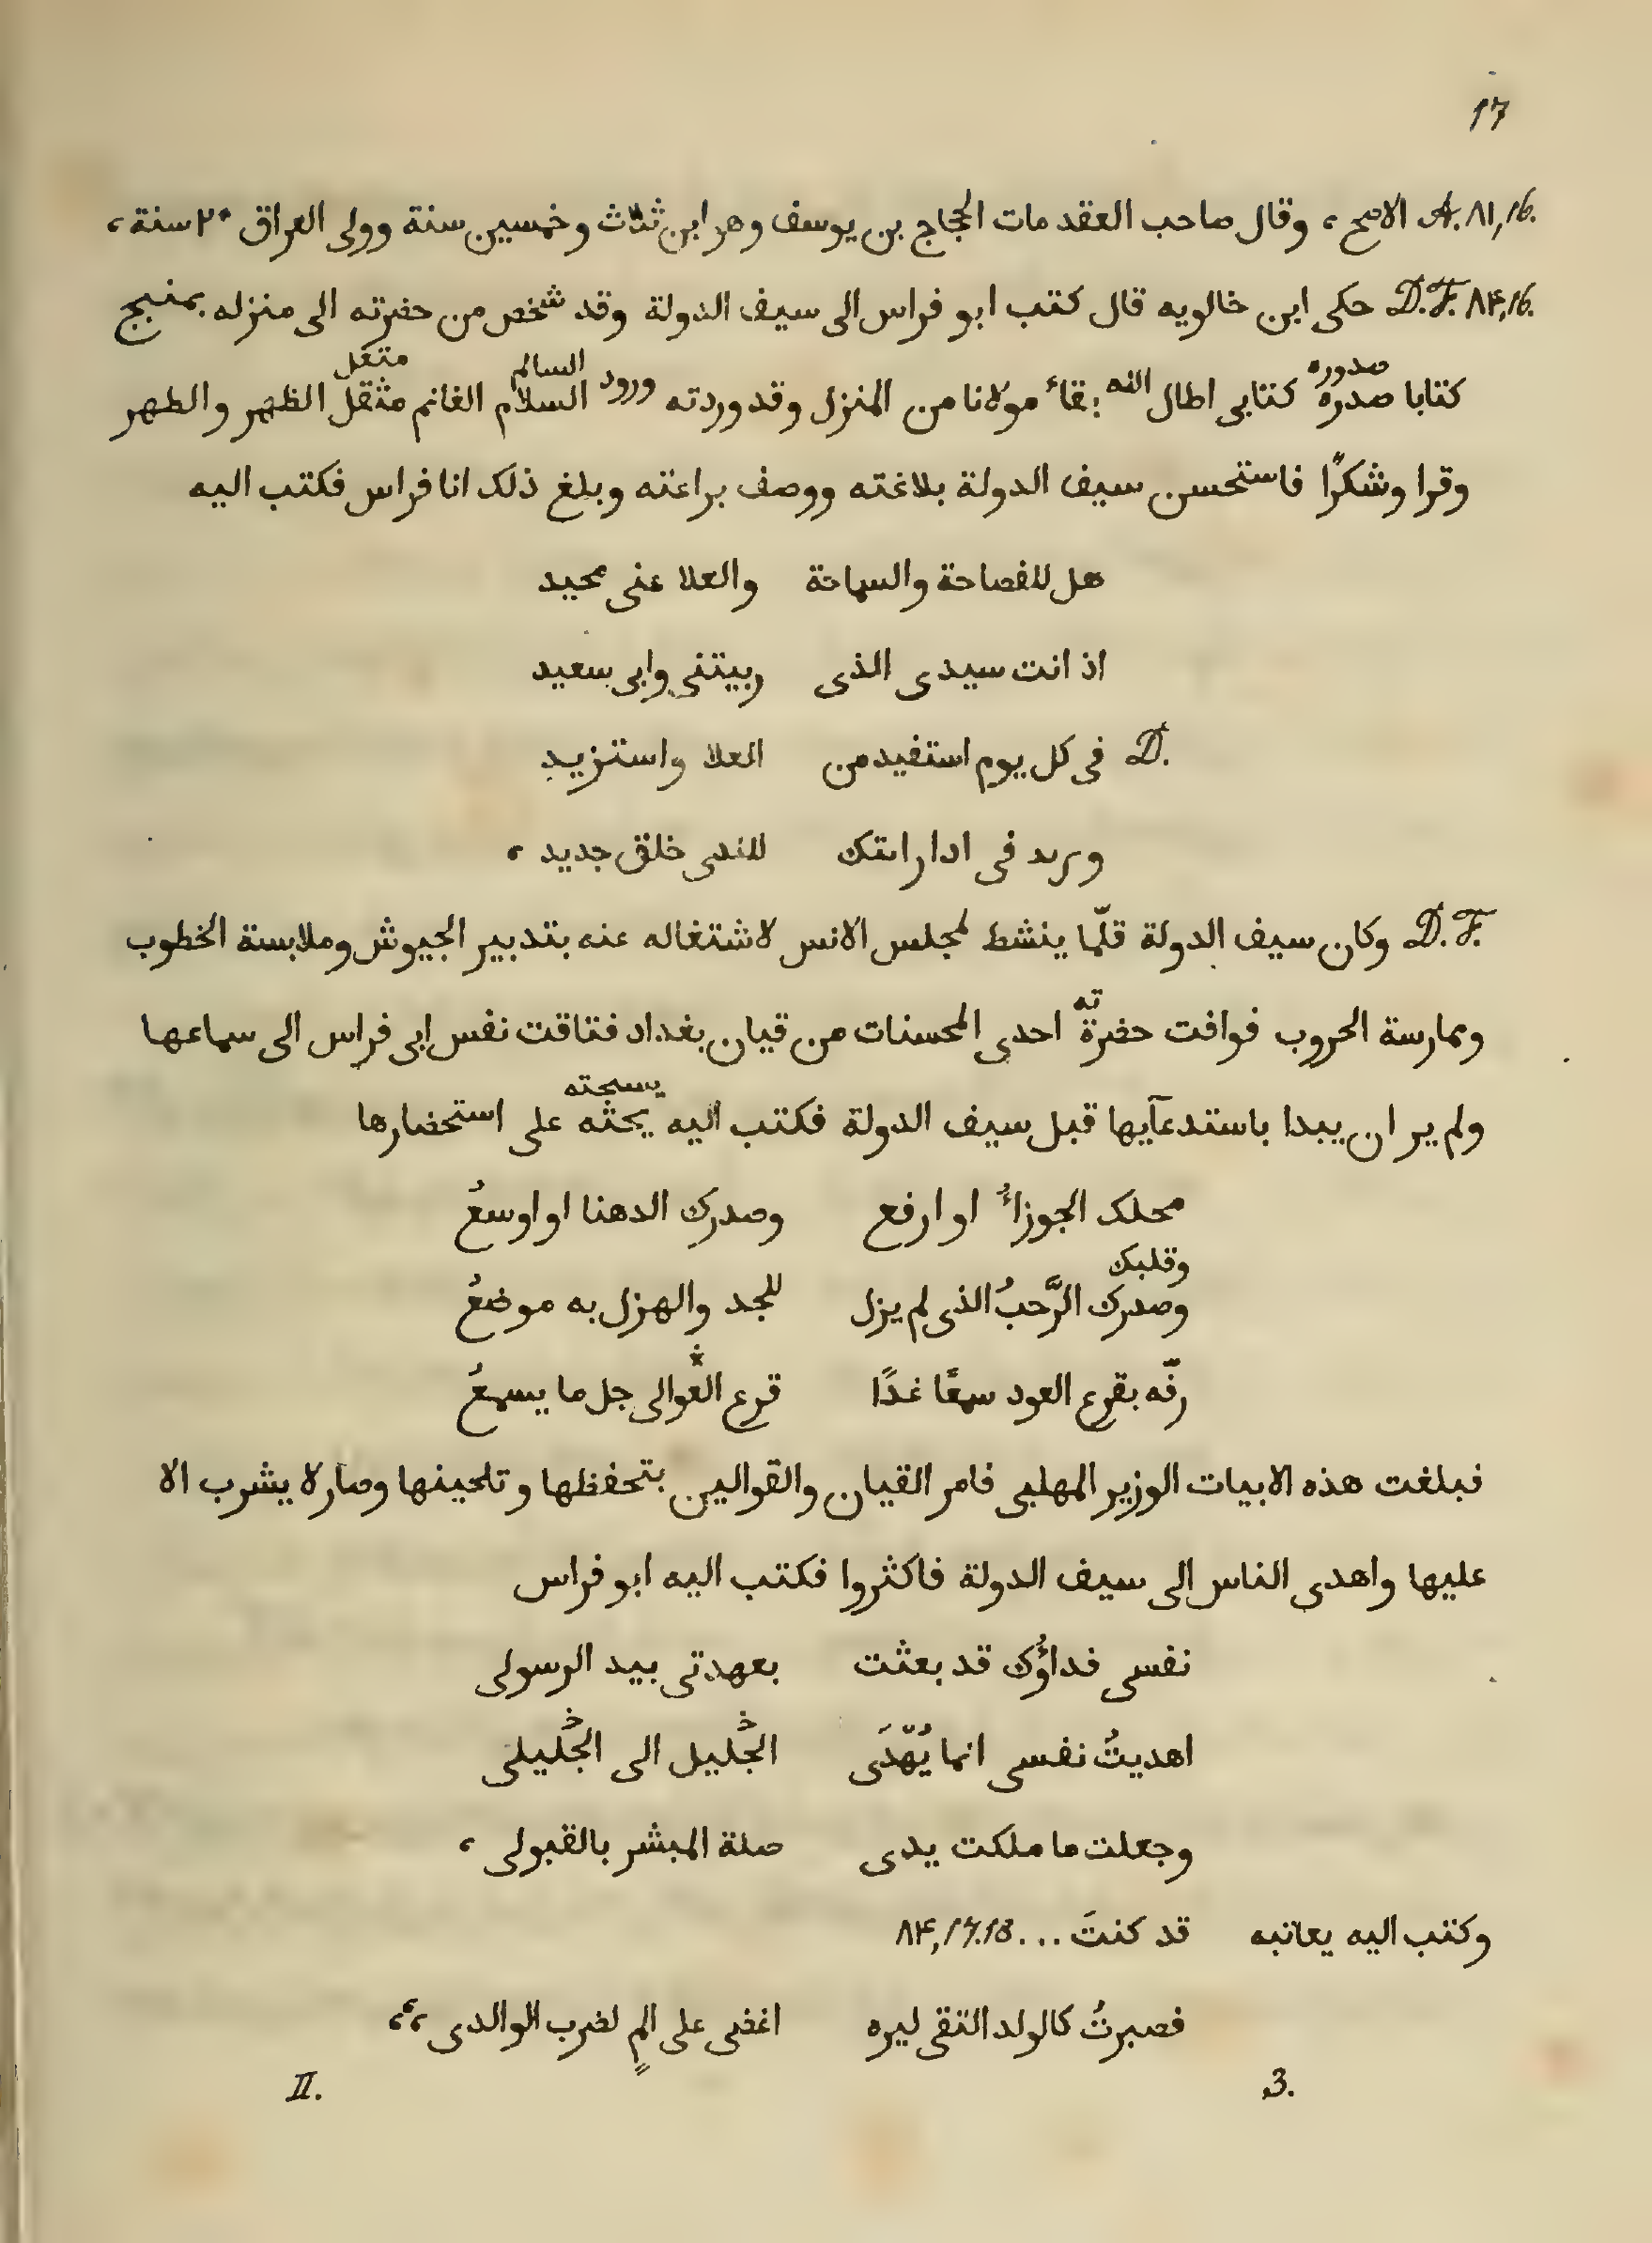 17
A. ۸۱,16. الاصح ، وقال صاحب العقد مات الحجاج بن يوسف وهو ابن ثلاث وخمسين سنة وولى العراق ۲۰ سنة ،
D.F. ۸۴,16. حكى ابن خالويه قال كتب ابو فراس الى سيف الدولة وقد شخص من حضرته الى منزله بمنبج
صدوره السالم متقل
كتابا صدره كتابى اطال الله بقاء مولانا من المنزل وقد وردته ورود السلام الغانم مثقل الظهر والظهر
وقرا وشكرًا فاستحسن سيف الدولة بلاغته ووصف براعته وبلغ ذلك انا فراس فكتب اليه
هل للفصاحة والسماحة والعلا عنى محيد
اذ انت سيدى الذى ربيتنى وابى سعيد
D. فى كل يوم استفيد من العلا واستزيد
وىرىد فى ادا راىتك للندى خلق جديد ،
D.F. وكان سيف الدولة قلّما ينشط لمجلس الانس لاشتغاله عنه بتدبير الجيوش وملابسة الخطوب
ته
وممارسة الحروب فوافت حضرة احدى المحسنات من قيان بغداد فتاقت نفس ابى فراس الى سماعها
يسحته
ولم ير ان يبدا باستدعآيها قبل سيف الدولة فكتب اليه يحثه على استحضارها
محلك الجوزاءُ او ارفع وصدرك الدهنا او اوسعُ
وقلبك
وصدرك الرَّحبُ الذى لم يزل للجد والهزل به موضعُ
رفّه بقرع العود سمعًا غدًا قرع العوالى جل ما يسمعُ
فبلغت هذه الابيات الوزير المهلبى فامر القيان والقوالين بتحفظها وتلحينها وصار لا يشرب الا
عليها واهدى الناس الى سيف الدولة فاكثروا فكتب اليه ابو فراس
نفسى فداؤُك قد بعثت بعهدتى بيد الرسولى
اهديتُ نفسى انما يُهّدَى الجليل الى الجليلى
وجعلت ما ملكت يدى صلة المبشر بالقبولى ،
وكتب اليه يعاتبه قد كنتَ ... ۸۴,17.18
فصبرتُ كالولد التقى ليره اغضى على المٍ لضرب الوالدى ،،،
3. II.